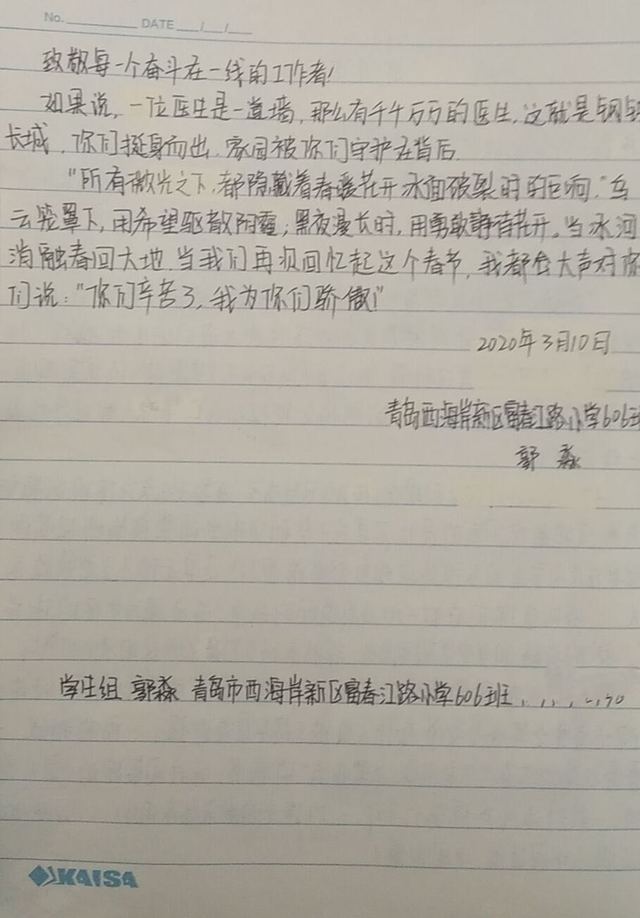 No. DATE / /
致敬每一个奋斗在一线的工作者!
如果说,一位医生是一道墙,那么有千千万万的医生,这就是钢铁
长城,你们挺身而出,家园被你们守护在背后.
"所有微光之下,都隐藏着春暖花开冰面破裂时的巨响."乌
云笼罩下,用希望驱散阴霾;黑夜漫长时,用勇敢静待花开。当冰河
消融春回大地,当我们再次回忆起这个春节,我都会大声对你
们说:"你们辛苦了,我为你们骄傲!"
2020年3月10日
青岛西海岸新区富春江路小学606班
郭淼
学生组 郭淼 青岛市西海岸新区富春江路小学606班
KAISA